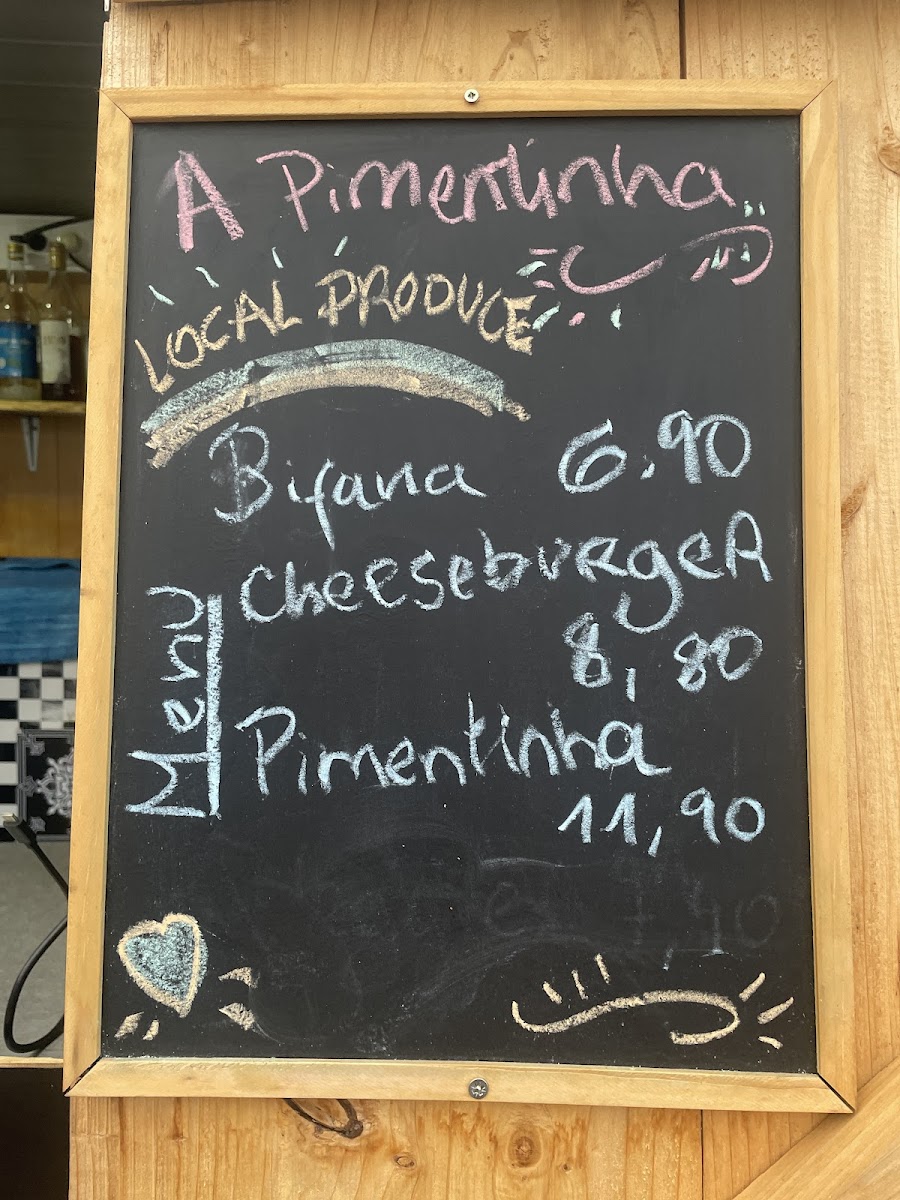 A Pimentinha
LOCAL PRODUCE
Bifana 6.90
CheeseburgeR
8,80
Menu
Pimentinha
11,90